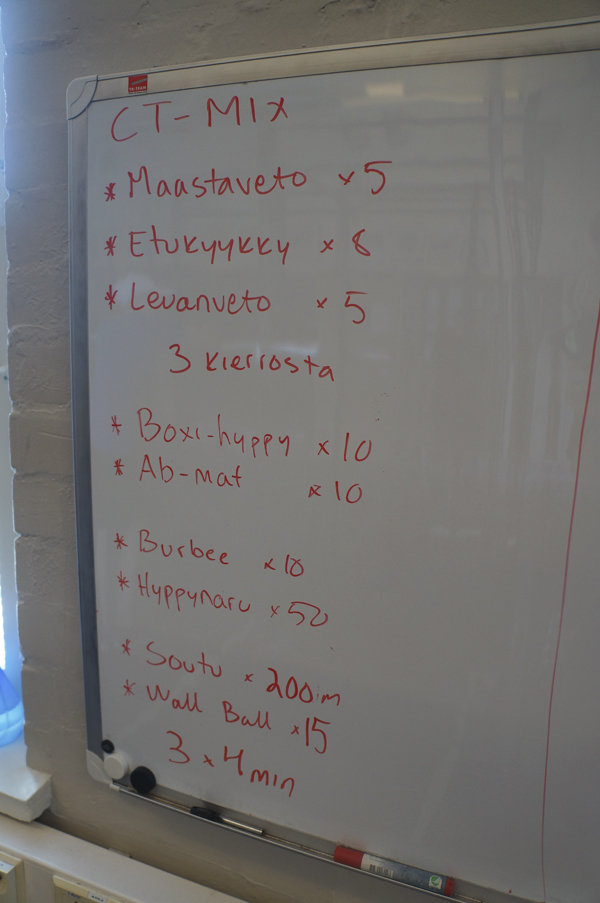 CT-MIX
* Maastaveto x 5
* Etukyykky x 8
* Levanveto x 5
3 kierrosta
* Boxi-hyppy x 10
* Ab-mat x 10
* Burbee x 10
* Hyppynaru x 50
* Soutu x 200m
* Wall Ball x 15
3 x 4 min